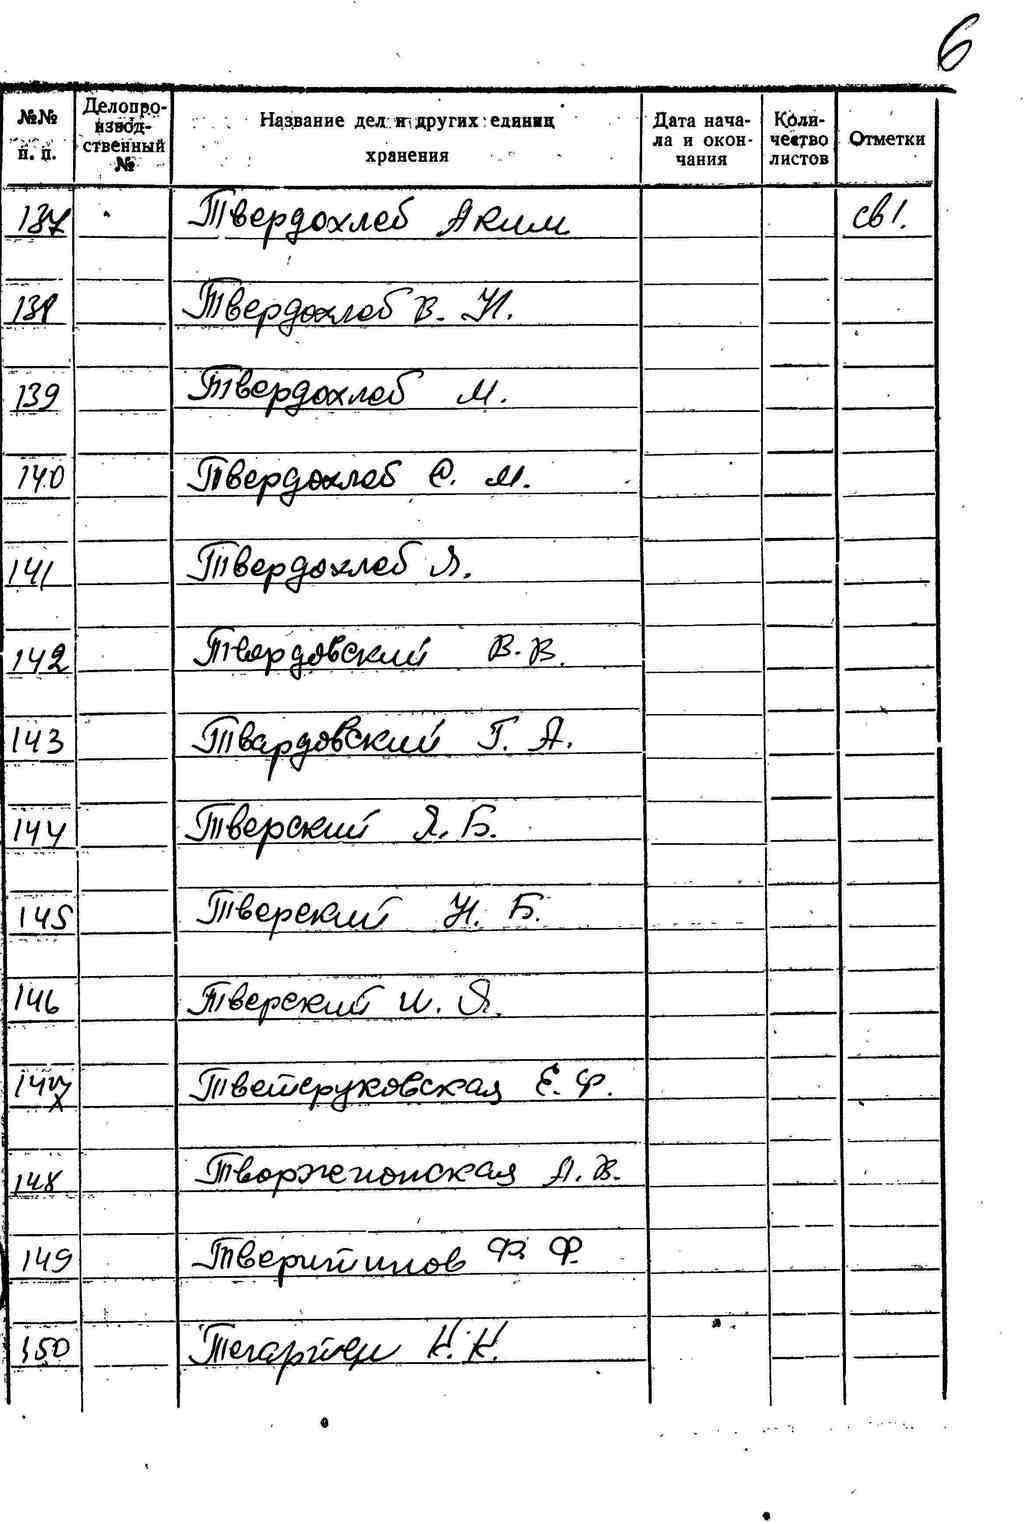 6
№№ п. п. Делопроизводственный № Название дел и других единиц хранения Дата начала и окончания Количество листов Отметки
137 Твердохлеб Аким св 1.
138 Твердохлеб В. И.
139 Твердохлеб М.
140 Твердохлеб С. М.
141 Твердохлеб Я.
142 Твардовский В. В.
143 Твардовский Г. А.
144 Тверский Я. Б.
145 Тверский И. Б.
146 Тверский И. Я.
147 Тветеруковская Е. Ф.
148 А. В.
149 Тверитинов Ф. Ф.
150 К. К.